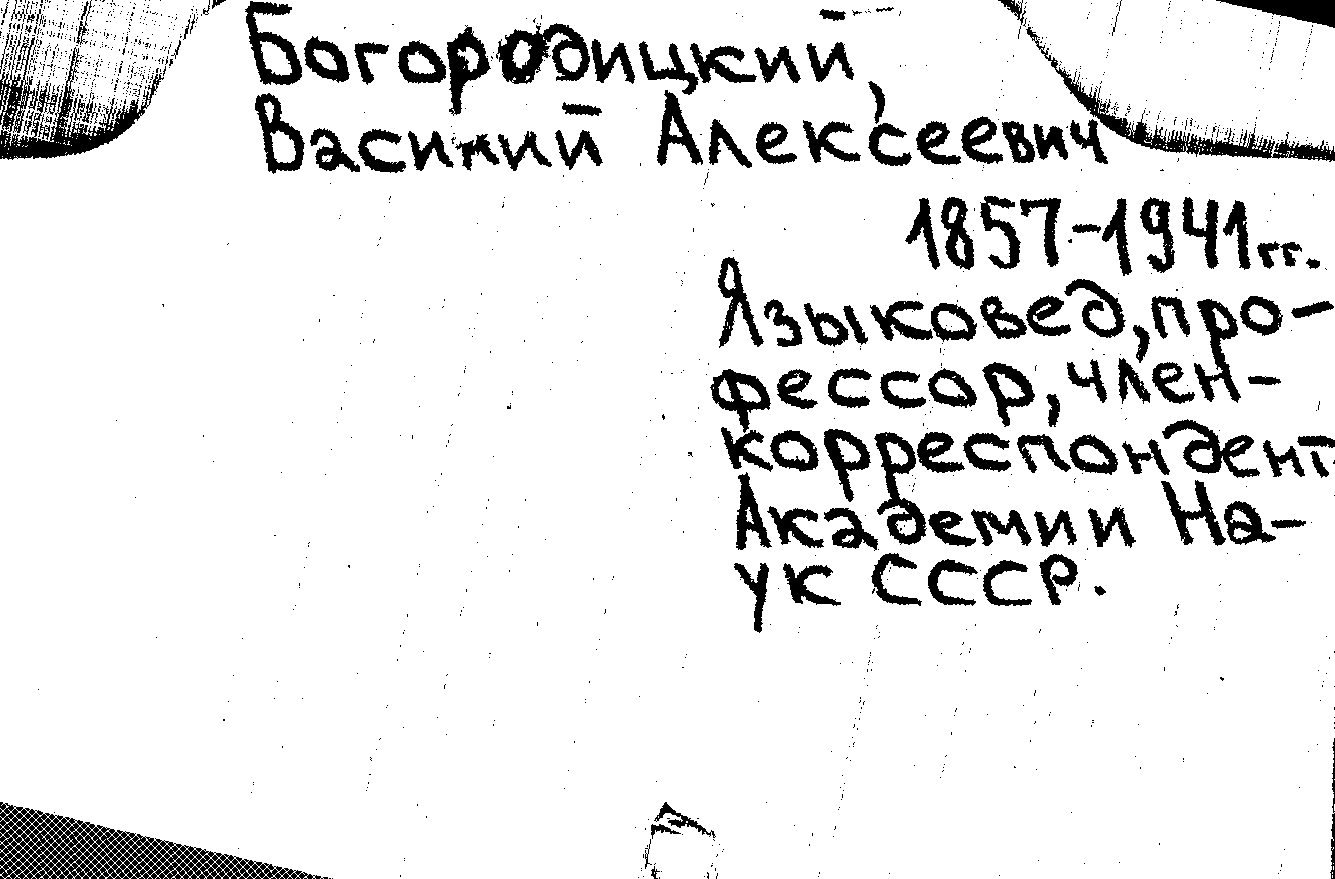 Богородицкий,
Василий Алексеевич
1857-1941гг.
Языковед, про-
фессор, член-
корреспондент
Академии На-
ук СССР.